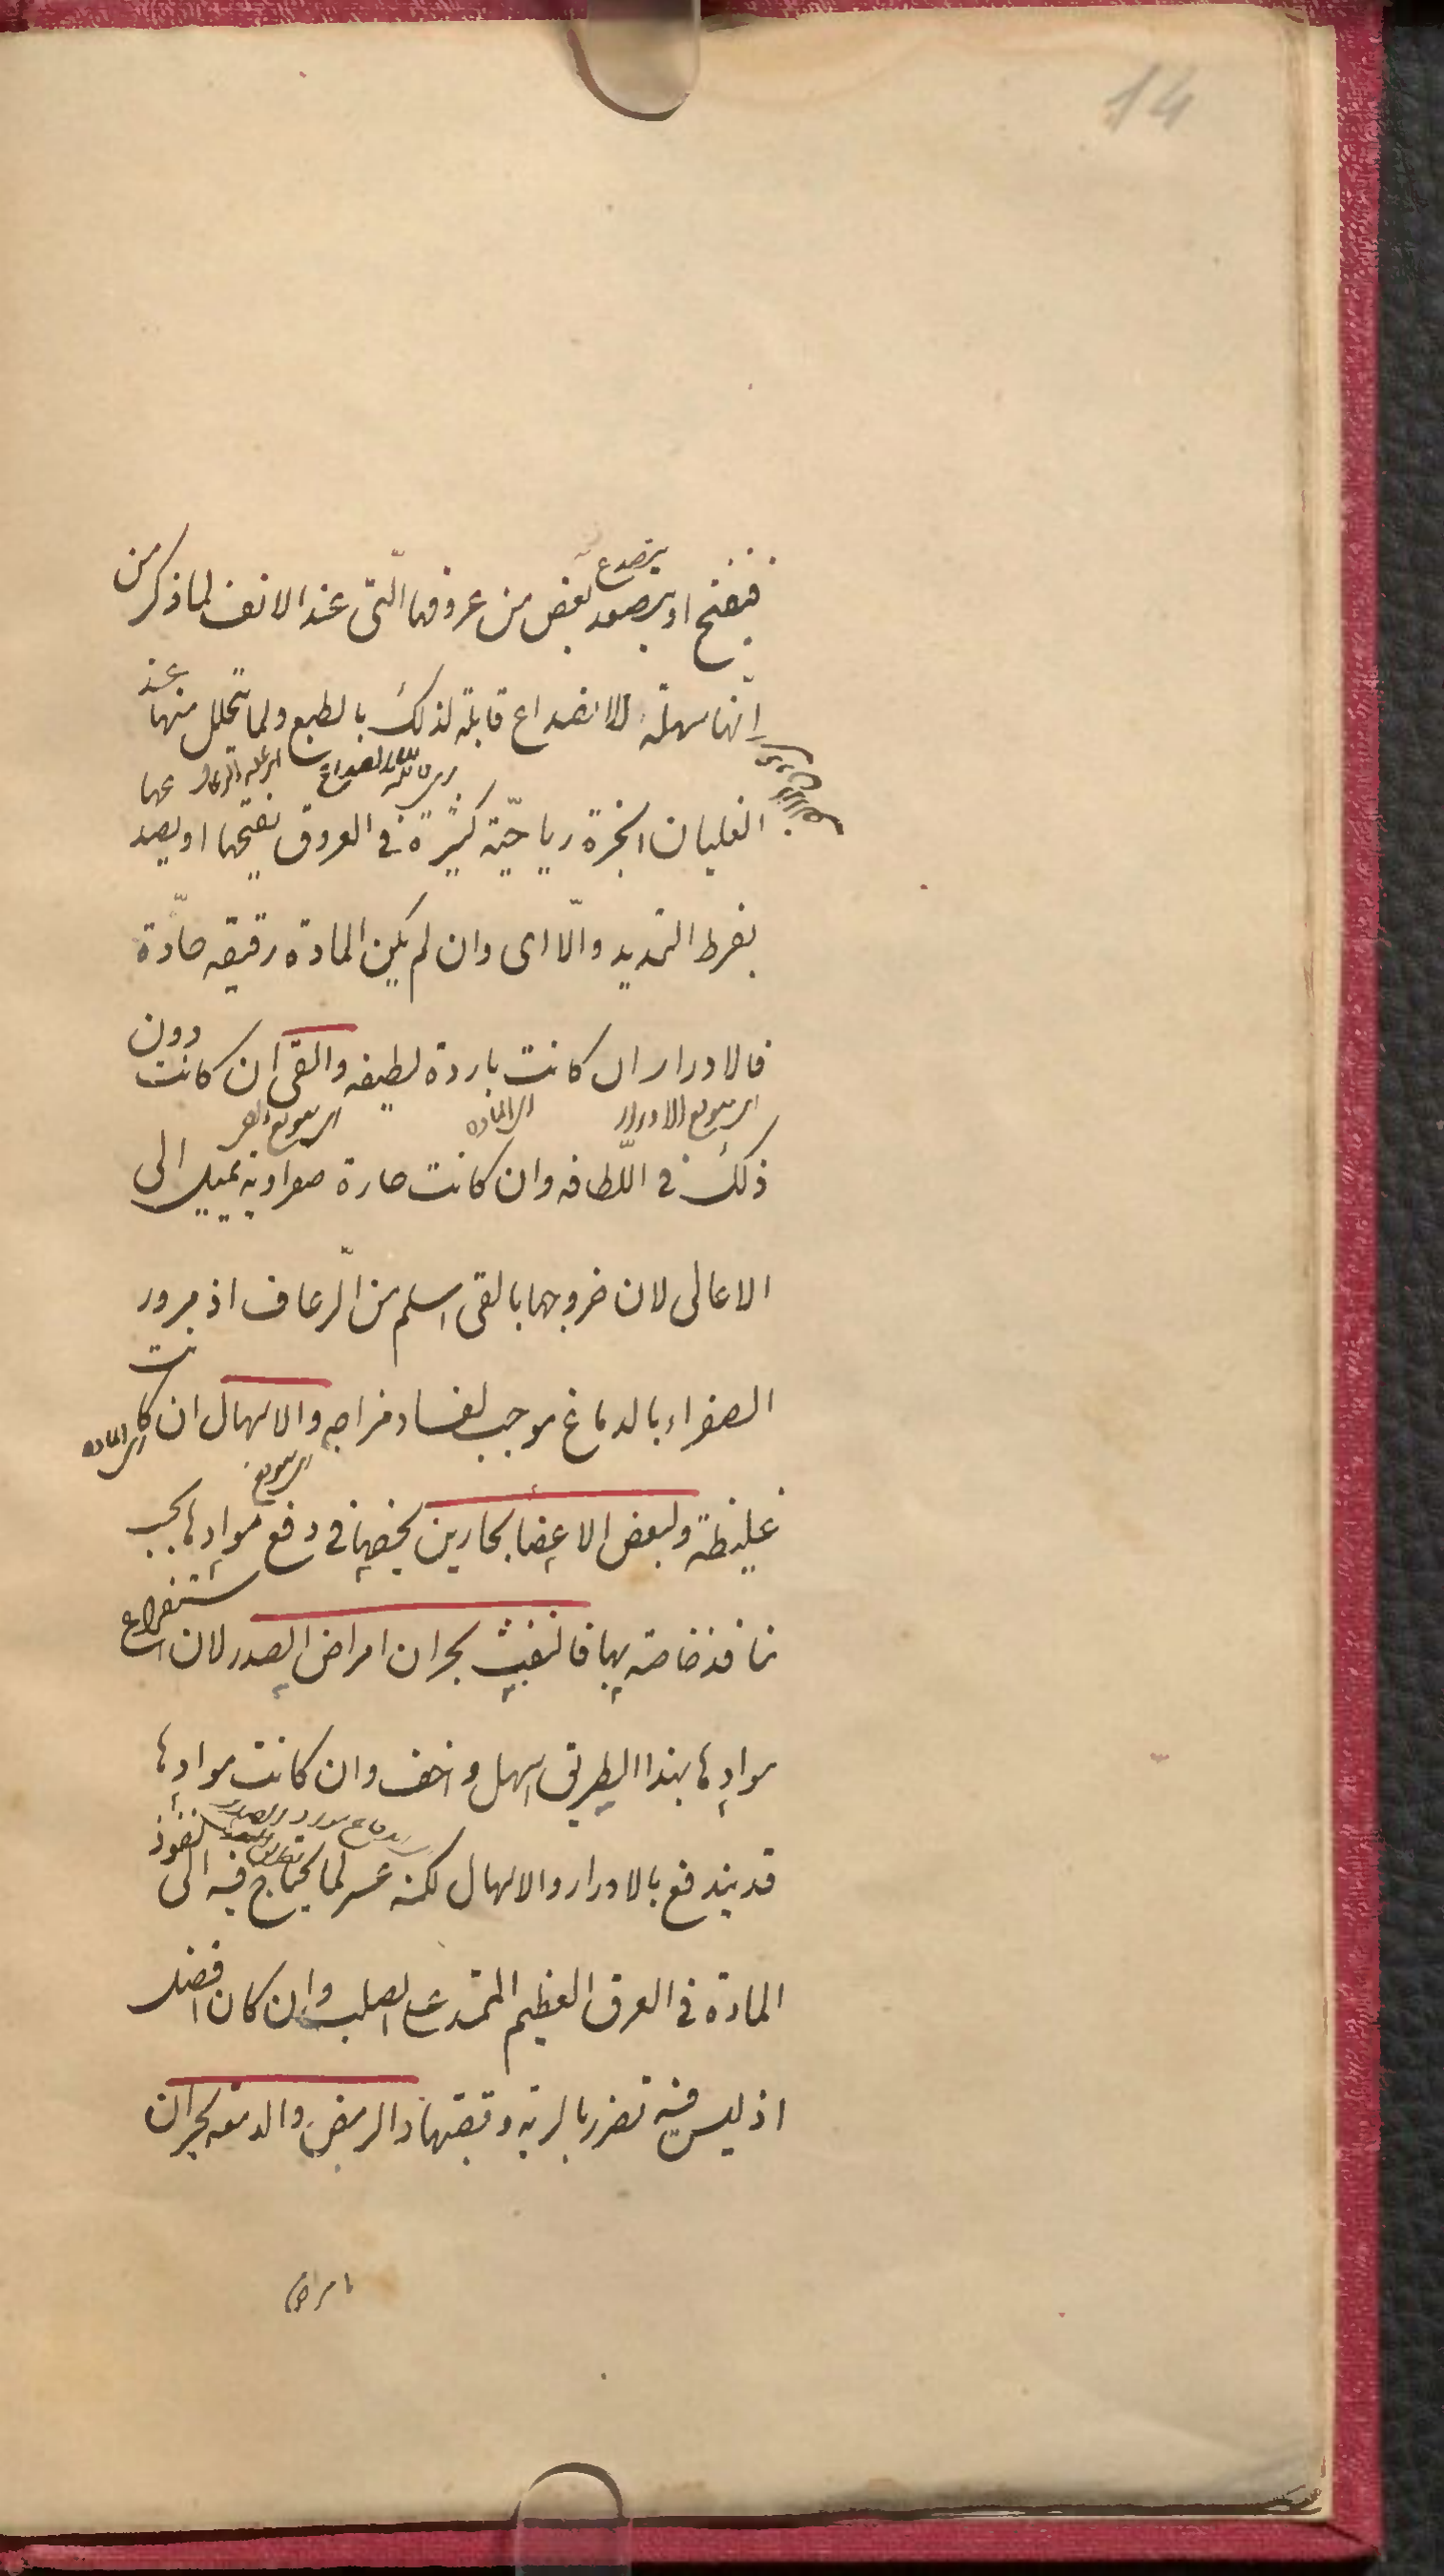 14
ينصدع
فينفتح او ينصعد بعض من عروقها الّتى عند الانف لما ذكر من
انّها سهلة الانصداع قابلة لذلك بالطبع ولما يتحلل منها عند
الغليان ابخرة رياحيّة كثيرة فى العروق يفتحها او يصد عها
بفرط التمديد والّا اى وان لم يكن المادة رقيقه حادّة
فالادرار ان كانت باردة لطيفه والقى ان كانت دون
اى يتوقع الادرار اى المادة
ذلك فى اللّطافه وان كانت حارة صفراوية يميل الى
الاعالى لان خروجها بالقى اسلم من الرّعاف اذ مرور
الصفراء بالدماغ موجب لفساد مزاجه والاسهال ان كانت
اى المادة
غليظة ولبعض الاعضا بحارين يخصها فى دفع موادها بحسب
منافذ خاصة بها فالنفث بحران امراض الصدر لان استفراغ
موادها بهذا الطريق اسهل واخف وان كانت موادها
قد يندفع بالادرار والاسهال لكنه عسر لما يحتاج فيه الى نفوذ
المادة فى العرق العظيم الممتد على الصلب وان كان افضل
اذ ليس فيه تضرر بالرية وقصبتها والرمص والدمعه بحران
امراض